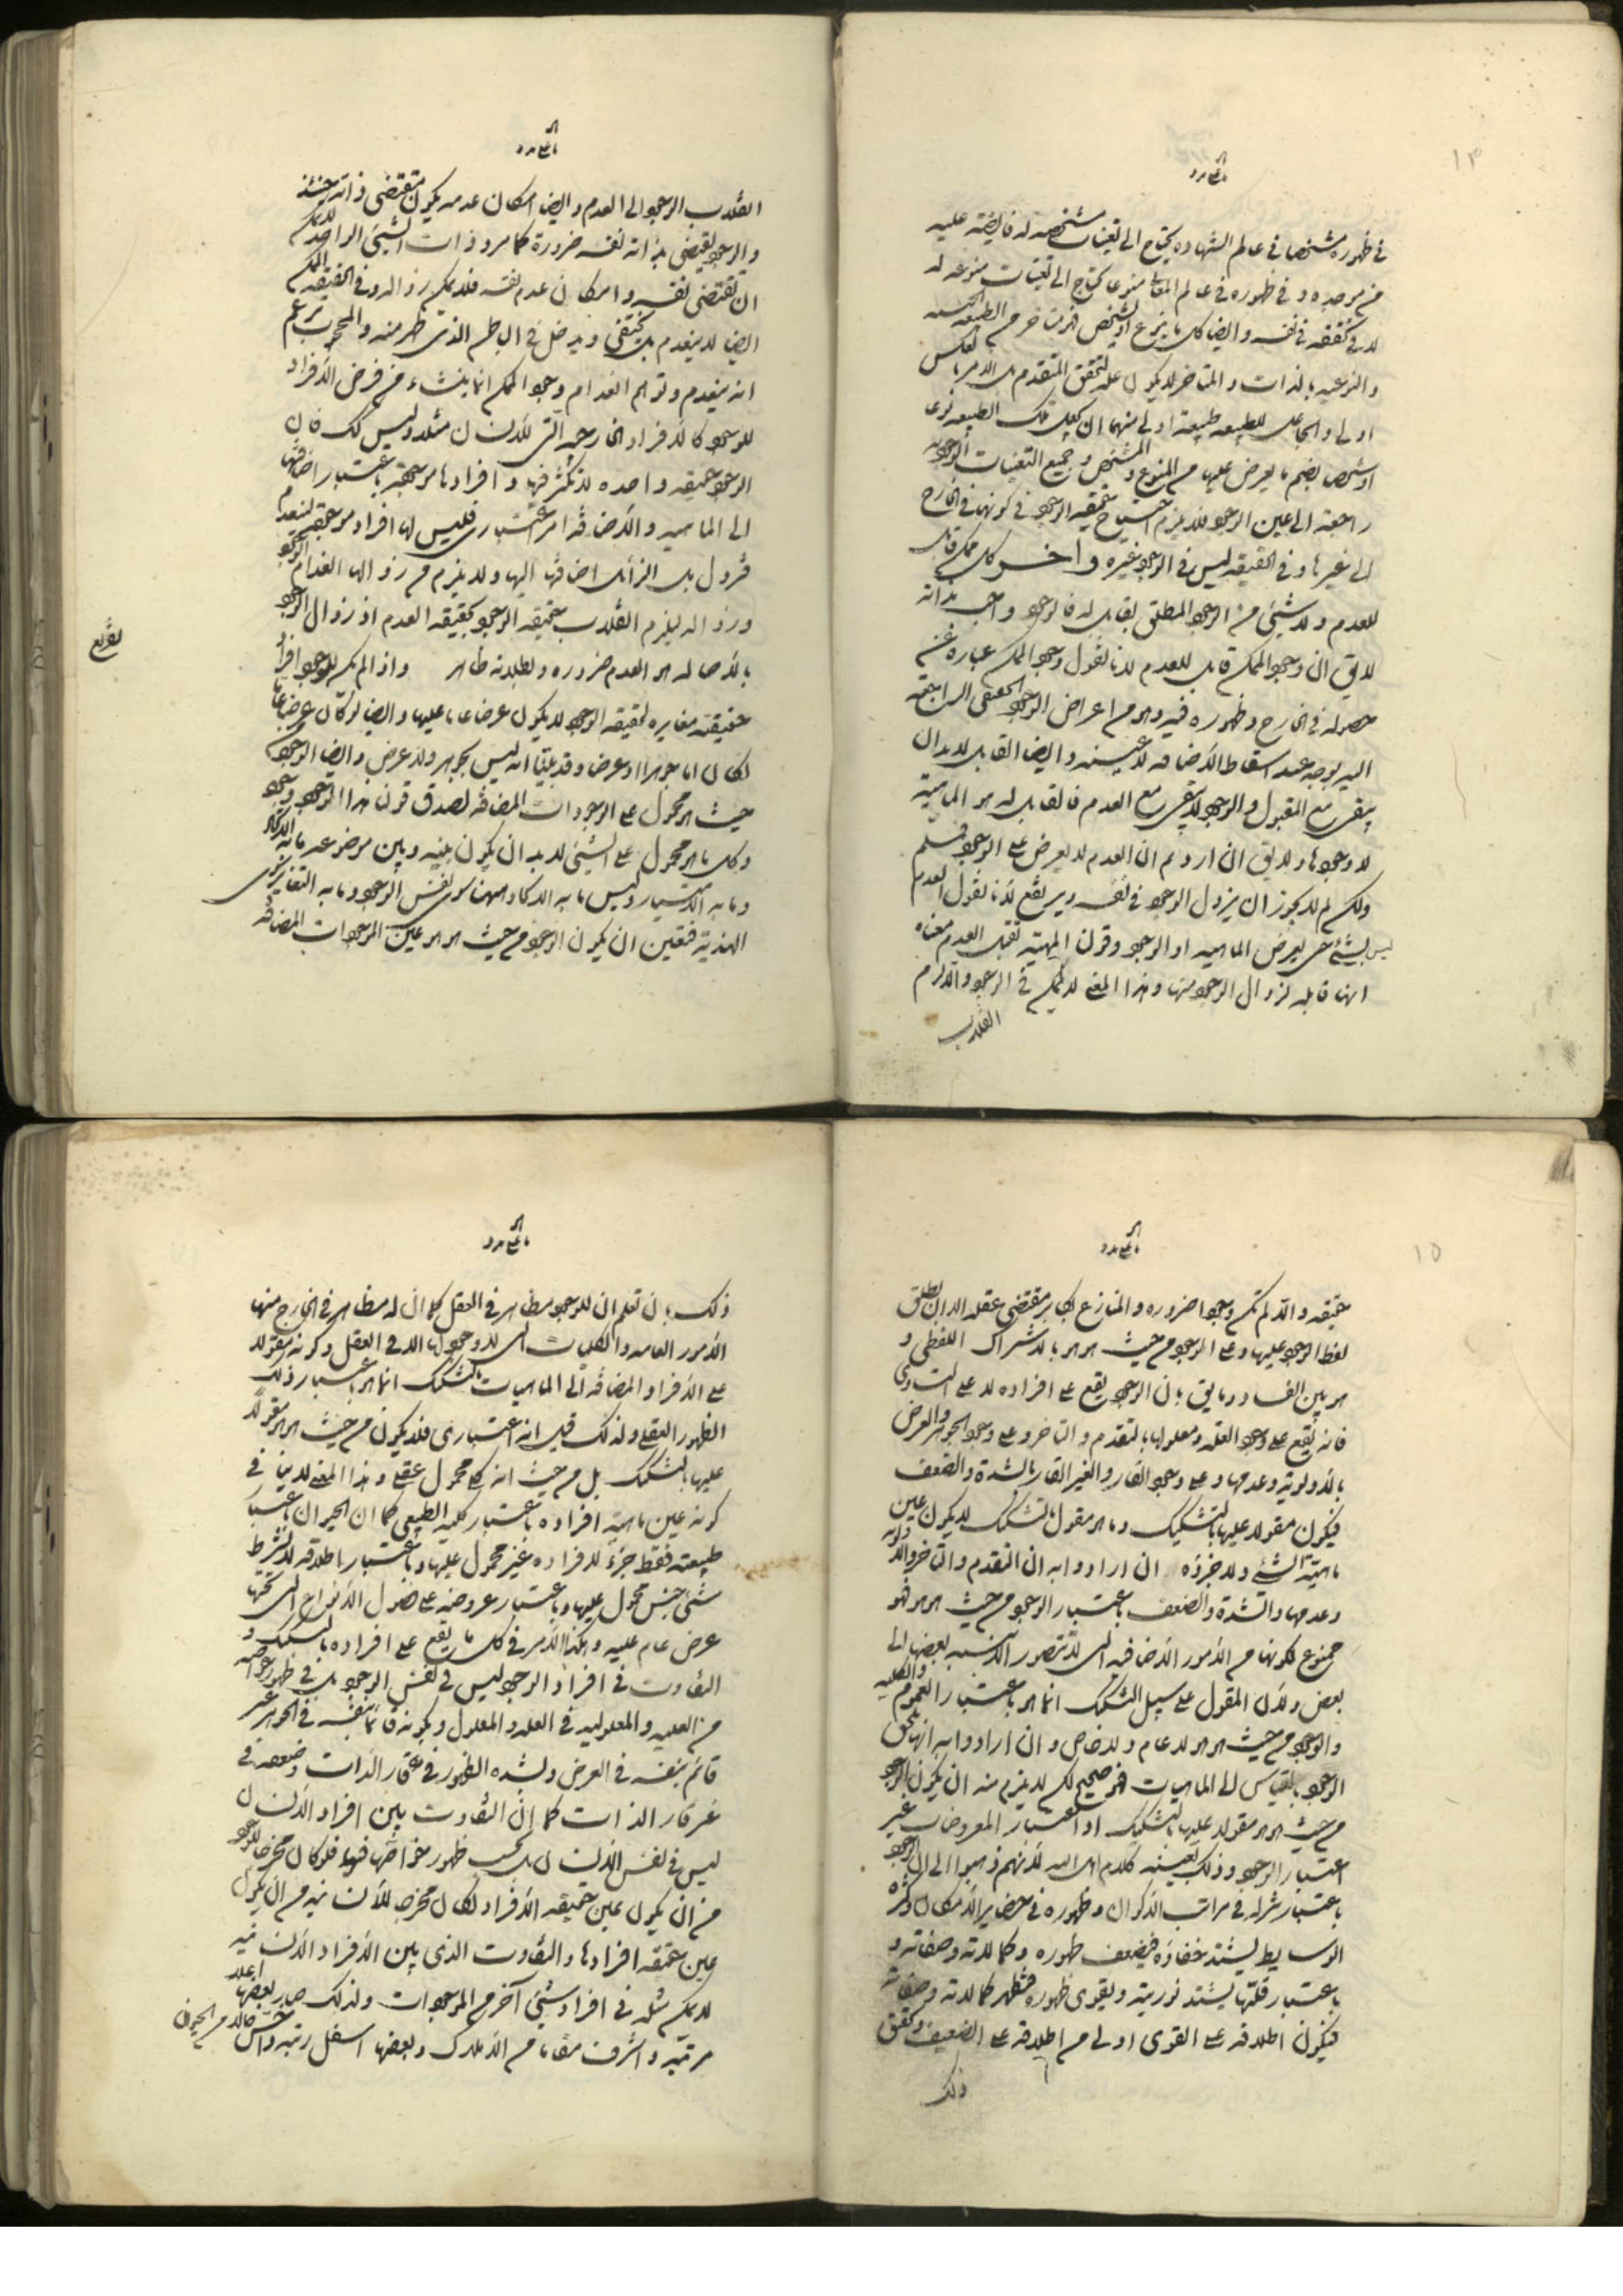 ١٣
في ظهوره مشخصا في عالم الشهادة يحتاج الى تعينات مشخصة له فايضة عليه
من موجده و في ظهوره في عالم المعاني منوعا يحتاج الى تعينات منوعة له
لا في تحققه في نفسه و ايضا كل ما يتنوع او يتشخص فهو متاخر من الطبيعة الجنسية
و النوعية بالذات و المتاخر لا يكون علة لتحقق المتقدم بل الامر بالعكس
اولى و الجاعل للطبيعة طبيعة اولى منهما ان يجعل تلك الطبيعة نوعا
او شخصا بضم ما يعرض عليها من المنوع و المشخص و جميع التعينات الوجودية
راجعة الى عين الوجود فلا يلزم احتياج حقيقة الوجود في كونها في الخارج
الى غيرها و في الحقيقة ليس في الوجود غيره و اخر كل ممكن قابل
للعدم و لا شيئ من الوجود المطلق بقابل له فالوجود واجب بذاته
لا يق ان وجود الممكن قابل للعدم لانا نقول وجود الممكن عبارة عن
حصوله في الخارج و ظهوره فيه و هو من اعراض الوجود الحقيقي الراجعة
اليه بوجه عند اسقاط الاضافة لا عينه و ايضا القابل لا بد ان
يبقى مع المقبول و الوجود لا يبقى مع العدم فالقابل له هو الماهية
لا وجودها و لا يق ان اردتم ان العدم لا يعرض على الوجود فمسلم
و لكن لم لا يجوز ان يزول الوجود في نفسه و يرتفع لانا نقول العدم
ليس بشيئ حتى يعرض الماهية او الوجود و قولنا المهية تقبل العدم معناه
انها قابلة لزوال الوجود منها و هذا المعنى لا يمكن في الوجود و الا لزم
انقلاب
انقلاب الوجود الى العدم و ايضا امكان عدمه يكون مقتضى ذاته حينئذ
و الوجود يقتضي بذاته نفسه ضرورة كما مر و ذات الشيئ الواحد لا يمكن
ان تقتضي نفسه و امكان عدم نفسه فلا يمكن زواله و في الحقيقة الممكن
ايضا لا ينعدم بل يختفي و يدخل في الباطن الذي ظهر منه و المحجوب يزعم
انه ينعدم و توهم انعدام وجود الممكن انما ينشاء من فرض الافراد
للوجود كالافراد الخارجية التي للانسان مثلا و ليس كك فان
الوجود حقيقة واحدة لا تكثر فيها و افرادها موجودة باعتبار اضافتها
الى الماهية و الاضافة امر اعتباري فليس لها افراد موجودة لينعدم
فتزول بل الزائل اضافتها اليها و لا يلزم من زوالها انعدام الوجود
و زواله ليلزم انقلاب حقيقة الوجود بحقيقة العدم اذ زوال الوجود
بالاصالة هو العدم ضرورة و بطلانه ظاهر و اذا لم يكن للوجود افراد
تفريع
حقيقية مغايرة لحقيقة الوجود لا يكون عرضا عاما عليها و ايضا لو كان عرضا عاما
لكان اما جوهرا او عرضا و قد بينا انه ليس بجوهر و لا عرض و ايضا الوجود من
حيث هو محمول على الوجودات المضافة لصدق قولنا هذا الوجود وجود
و كل ما هو محمول على الشيئ لا بد ان يكون بينه و بين موضوعه ما به الاتحاد
و ما به الامتياز و ليس ما به الاتحاد ههنا سوى نفس الوجود و ما به التغاير سوى
الهذية فتعين ان يكون الوجود من حيث هو هو عين الموجودات المضافة
١٥
حقيقة و الا لم تكن وجودا ضرورة و المنازع يكابر مقتضى عقله الا ان يطلق
لفظ الوجود عليها و على الوجود من حيث هو هو بالاشتراك اللفظي و
هو بين الفساد و ما يق بان الوجود يقع على افراده لا على التساوي
فانه يقع على وجود العلة و معلولها بالتقدم و التاخر و على وجود الجوهر و العرض
بالاولوية و عدمها و على وجود القار و الغير القار بالشدة و الضعف
فيكون مقولا عليها بالتشكيك و ما هو مقول بالتشكيك لا يكون عين
ماهية الشيئ و لا جزؤه ان ارادوا به ان التقدم و التاخر و الاولوية
و عدمها و الشدة و الضعف باعتبار الوجود من حيث هو هو فهو
ممنوع لكونها من الامور الاضافية التي لا تتصور الا بنسبة بعضها الى
بعض و لان المقول على سبيل التشكيك انما هو باعتبار العموم و الكلية
و الوجود من حيث هو هو لا عام و لا خاص و ان ارادوا به انها تلحق
الوجود بالقياس الى الماهيات فهو صحيح لكن لا يلزم منه ان يكون الوجود
من حيث هو هو مقولا عليها بالتشكيك اذ اعتبار المعروضات غير
اعتبار الوجود و ذلك بعينه كلام اهل الله لانهم ذهبوا الى ان الوجود
باعتبار تنزله في مراتب الاكوان و ظهوره في حضاير الامكان و كثرة
الوسايط يشتد خفاؤه فيضعف ظهوره و كمالاته و صفاته و
باعتبار قلتها يشتد نوريته و يقوى ظهوره فتظهر كمالاته و صفاته
فيكون اطلاقه على القوي اولى من اطلاقه على الضعيف و تحقيق
ذلك
ذلك بان تعلم ان للوجود مظاهر في العقل كما ان له مظاهر في الخارج منها
الامور العامة و الكليات التي لا وجود لها الا في العقل و كونه مقولا
على الافراد المضافة الى الماهيات بالتشكيك انما هو باعتبار ذلك
الظهور العقلي و لذلك قيل انه اعتباري فلا يكون من حيث هو هو مقولا
عليها بالتشكيك بل من حيث انه كلي محمول عقلي و هذا المعنى لا ينافي
كونه عين ماهية افراده باعتبار كليه الطبيعي كما ان الحيوان باعتبار
طبيعته فقط جزء لافراده غير محمول عليها و باعتبار اطلاقه لا بشرط
شيئ جنس محمول عليها و باعتبار عروضه على فصول الانواع التي تحتها
عرض عام عليه و هكذا الامر في كل ما يقع على افراده بالتشكيك و
التفاوت في افراد الوجود ليس في نفس الوجود بل في ظهور خواصه
من العلية و المعلولية في العلة و المعلول و بكونه قائما بنفسه في الجوهر غير
قائم بنفسه في العرض و بشدة الظهور في قار الذات و ضعفه في
غير قار الذات كما ان التفاوت بين افراد الانسان
ليس في نفس الانسانية بل بحسب ظهور خواصها فيها فلو كان مخرجا للوجود
من ان يكون عين حقيقة الافراد لكان مخرجا للانسانية من ان يكون
عين حقيقة افرادها و التفاوت الذي بين الافراد الانسانية
لا يمكن مثله في افراد شيئ آخر من الموجودات و لذلك صار بعضها اعلى
مرتبة و اشرف مقاما من الاملاك و بعضها اسفل رتبة و اخس حالا من الحيوان